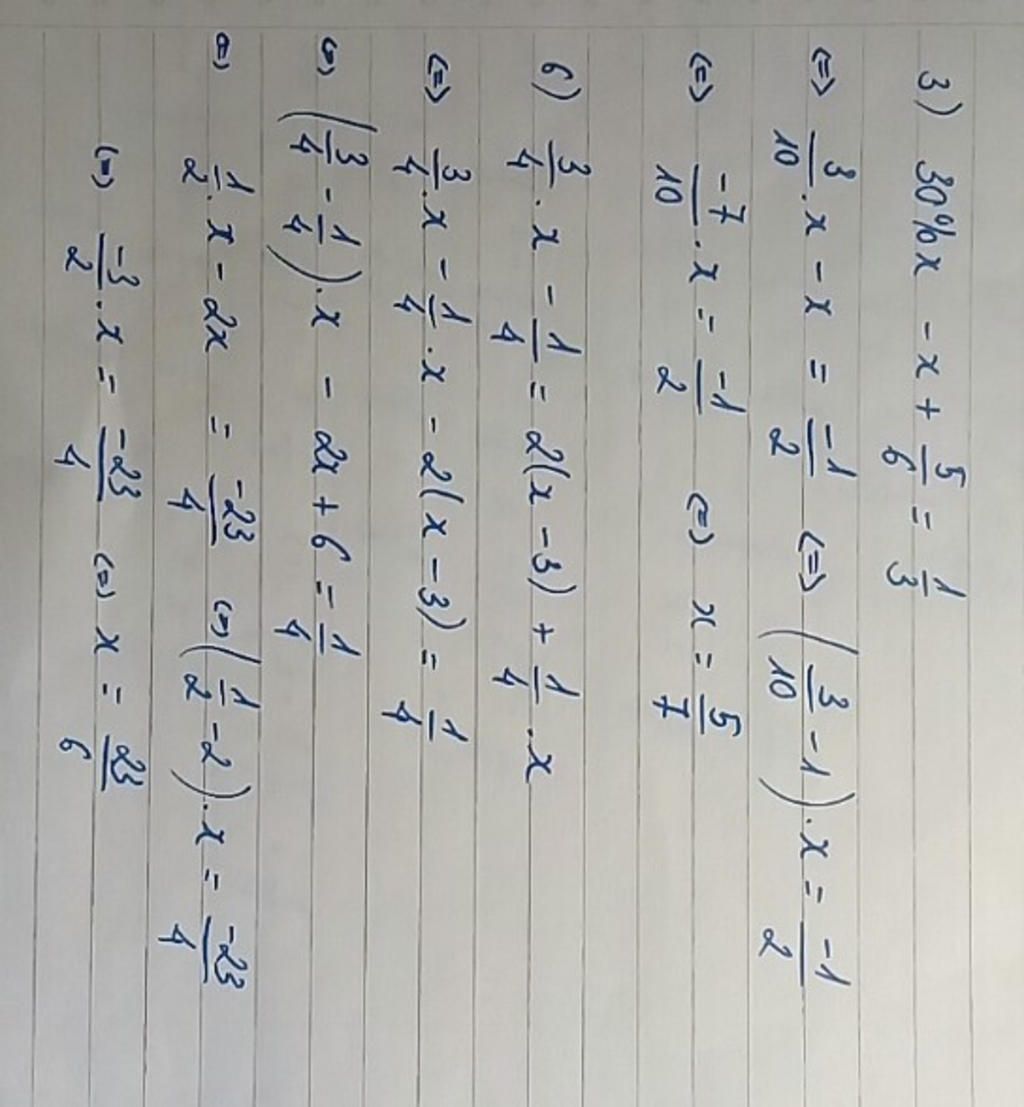 3) 30%x - x + 5/6 = 1/3
<=> 3/10 . x - x = -1/2 <=> (3/10 - 1) . x = -1/2
<=> -7/10 . x = -1/2 <=> x = 5/7
6) 3/4 . x - 1/4 = 2(x - 3) + 1/4 . x
<=> 3/4 . x - 1/4 . x - 2(x - 3) = 1/4
<=> (3/4 - 1/4) . x - 2x + 6 = 1/4
<=> 1/2 . x - 2x = -23/4 <=> (1/2 - 2) . x = -23/4
<=> -3/2 . x = -23/4 <=> x = 23/6